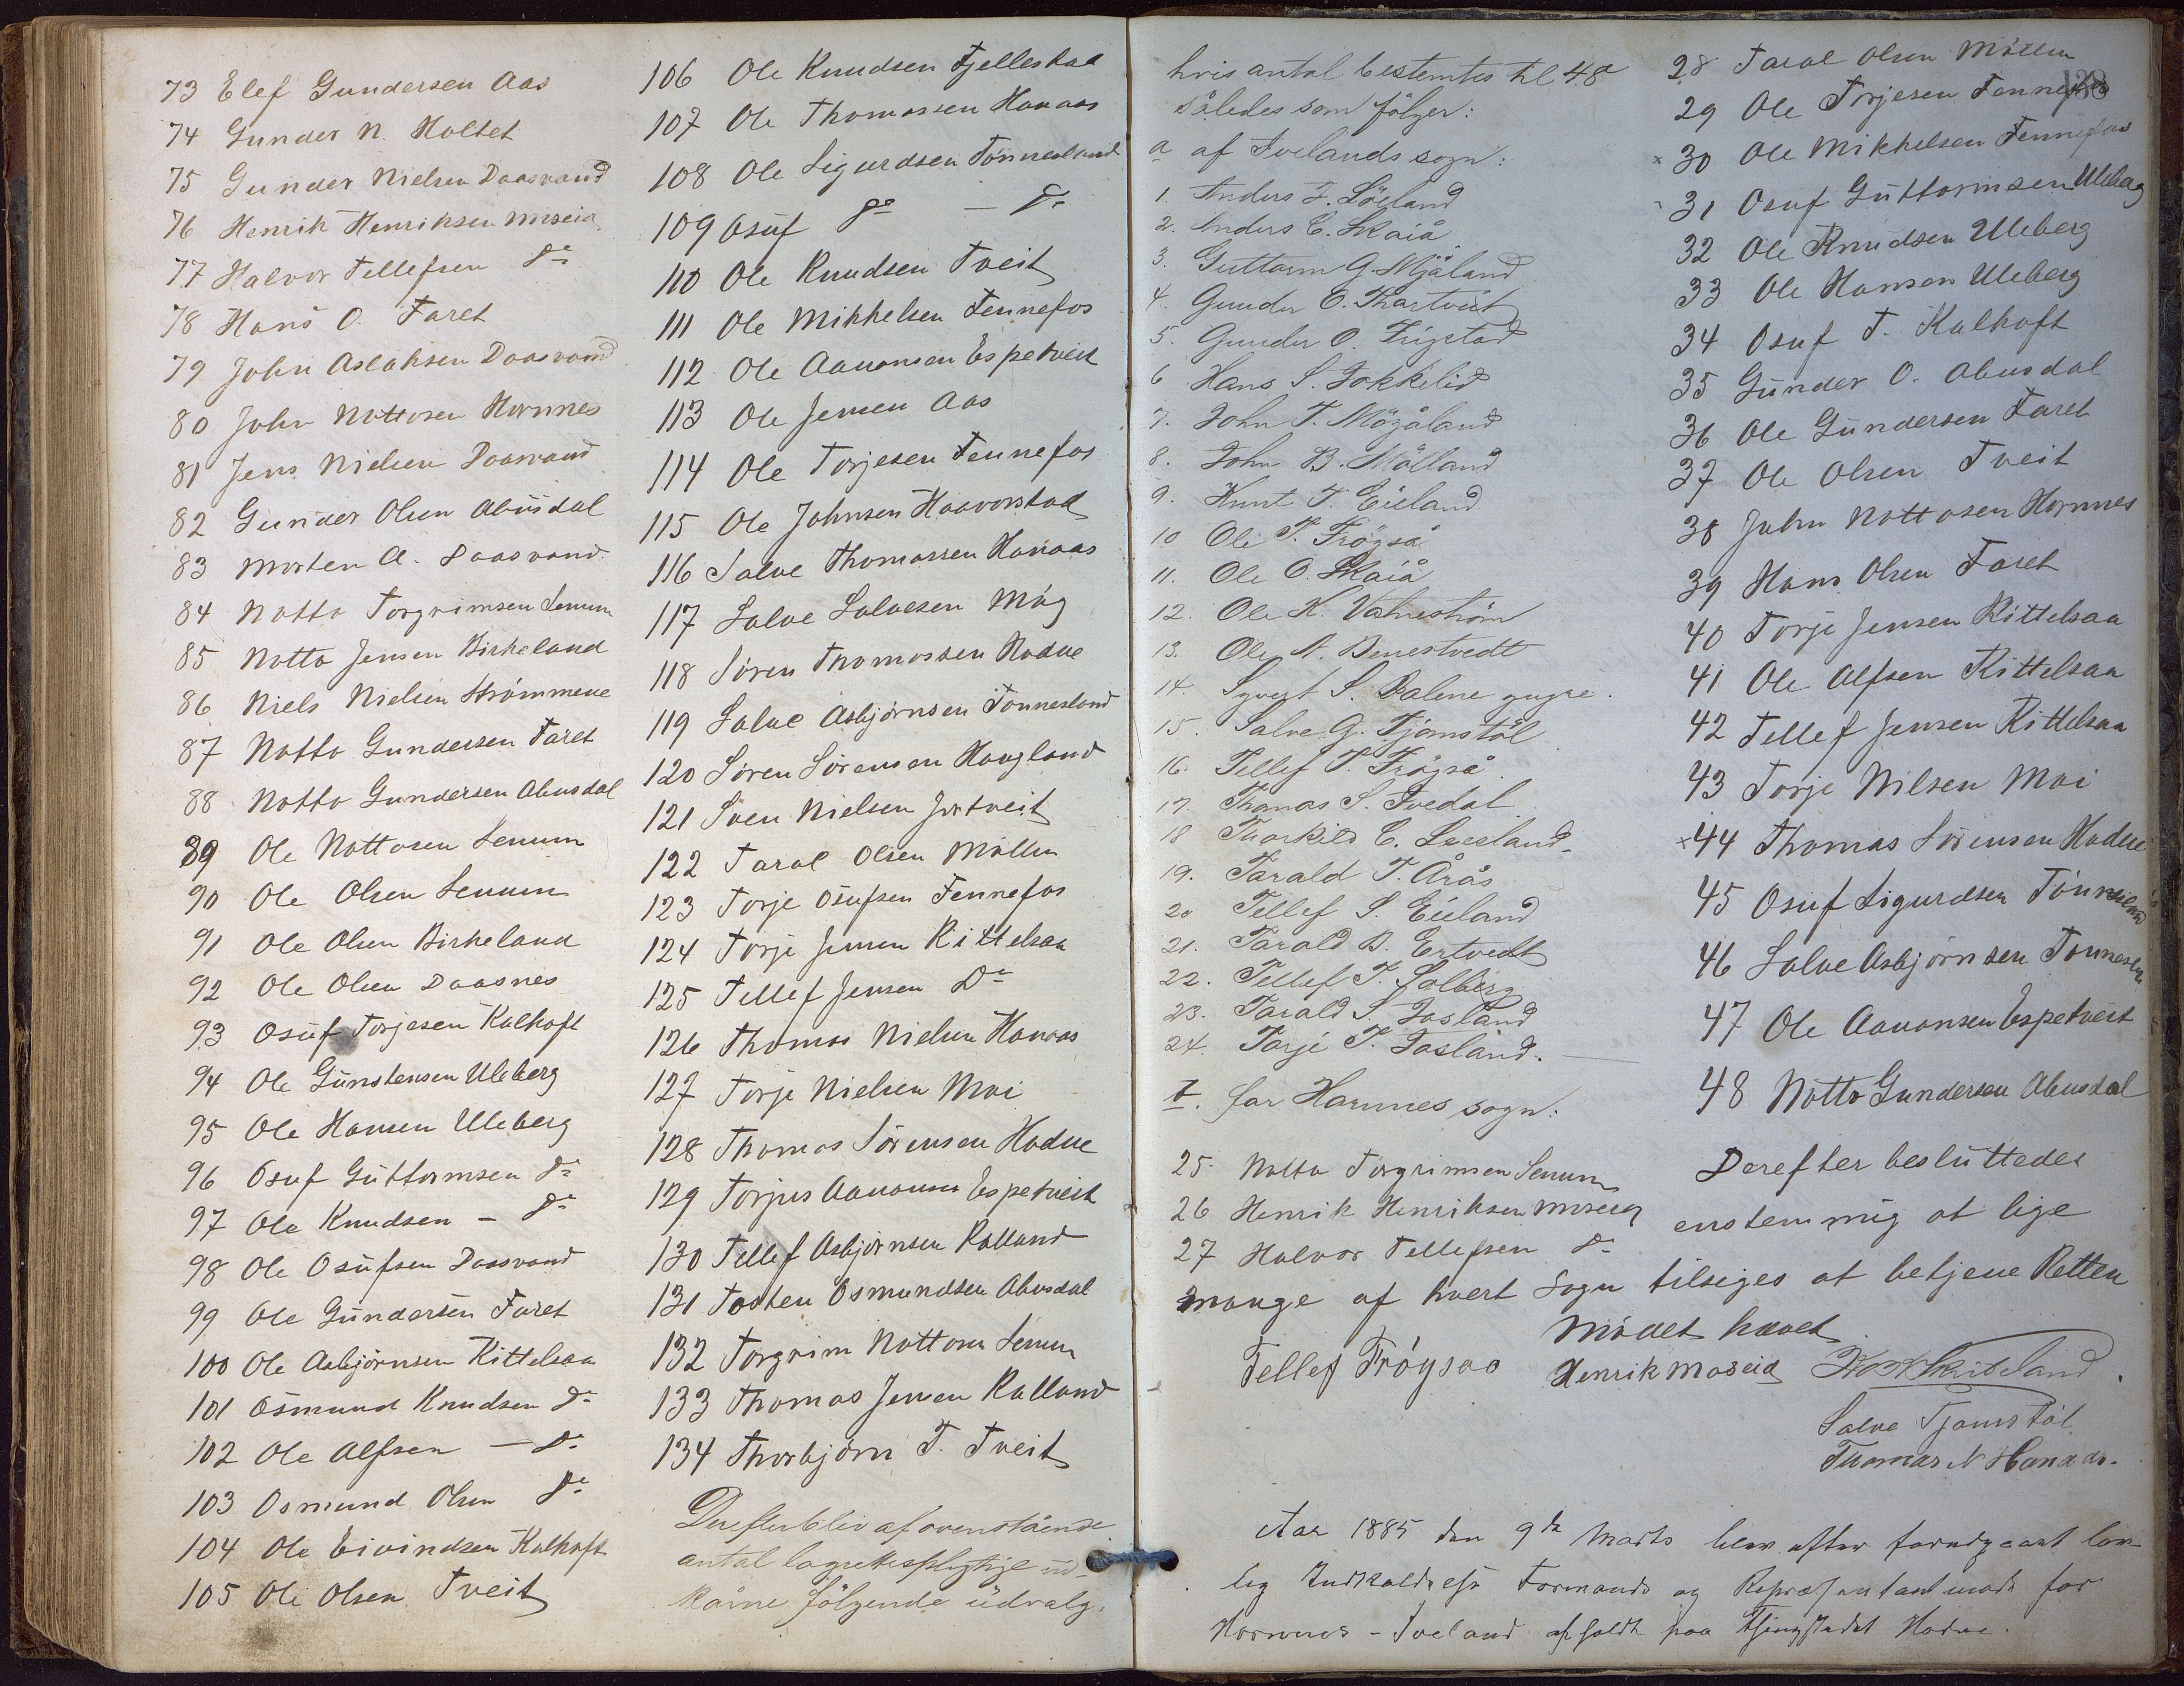 73 Elef Gundersen Aas
74 Gunder N. Holtet
75 Gunder Nielsen Daasvand
76 Henrik Henriksen Moseid
77 Halvor Tellefsen do
78 Hans O. Faret
79 John Aslaksen Daasvand
80 John Nottosen Hornnes
81 Jens Nielsen Daasvand
82 Gunder Olsen Abusdal
83 Morten A. Daasvand
84 Notto Torgrimsen Senum
85 Notto Jensen Birkeland
86 Niels Nielsen Strømmene
87 Notto Gundersen Faret
88 Notto Gundersen Abusdal
89 Ole Nottosen Senum
90 Ole Olsen Senum
91 Ole Olsen Birkeland
92 Ole Olsen Daasnes
93 Osuf Torjesen Kalhoft
94 Ole Gunstensen Uleberg
95 Ole Hansen Uleberg
96 Osuf Guttormsen do
97 Ole Knudsen - do
98 Ole Osufsen Daasvand
99 Ole Gundersen Faret
100 Ole Asbjørnsen Kittelsaa
101 Osmund Knudsen do
102 Ole Alfsen - do
103 Osmund Olsen do
104 Ole Eivindsen Kalhoft
105 Ole Olsen Tveit
106 Ole Knudsen Fjelleskaa
107 Ole Thomassen Hanaas
108 Ole Sigurdsen Tønnesland
109 Osuf do - do
110 Ole Knudsen Tveit
111 Ole Mikkelsen Fennefos
112 Ole Aanonsen Espetveit
113 Ole Jensen Aas
114 Ole Torjesen Fennefos
115 Ole Johnsen Haavorstad
116 Salve Thomassen Hanaas
117 Salve Salvesen Måg
118 Søren Thomassen Hodne
119 Salve Asbjørnsen Tønnesland
120 Søren Sørensen Haugland
121 Sven Nielsen Jortveit
122 Taral Olsen Møllen
123 Torje Osufsen Fennefos
124 Torje Jensen Kittelsaa
125 Tellef Jensen Do
126 Thomas Nielsen Hanaas
127 Torje Nielsen Moi
128 Thomas Sørensen Hodne
129 Torjus Aanonsen Espetveit
130 Tellef Asbjørnsen Kalland
131 Tosten Osmundsen Abusdal
132 Torgrim Nottosen Senum
133 Thomas Jensen Kalland
134 Thorbjørn T. Tveit
Derefter blev af ovenstående
antal lagrettespligtige ud-
kårne følgende üdvalg,
138
hvis antal bestemtes til 48
således som følger:
a af Ivelands sogn:
1. Anders J. Löyland
2. Anders C. Skaiå
3. Guttorm G. Mjåland
4. Gunder E. Thortveit
5. Gunder O. Frigstad
6 Hans S. Jokkelid
7. John T. Mögåland
8. John B. Mölland
9. Knut T. Eieland
10 Ole T. Fröyså
11. Ole O. Skaiå
12. Ole K. Vatneström
13. Ole N. Benestvedt
14. Syvert S. Dalene yngre.
15. Salve G. Tjömstöl
16. Tellef T. Fröyså
17. Thomas S. Ivedal
18 Thorkild C. Lueland
19. Tarald T. Årås
20 Tellef S. Eieland
21. Tarald B. Ertvedt
22. Tellef T. Solberg
23. Tarald S. Iasland
24. Tarje T. Iasland.
b. for Hornnes sogn:
25. Notto Torgrimsen Senum
26 Henrik Henriksen Moseid
27 Halvor Tellefsen do
28 Taral Olsen Møllen
29 Ole Torjesen Fennefos
x 30 Ole Mikkelsen Fennefos
31 Osuf Guttormsen Uleberg
32 Ole Knudsen Uleberg
33 Ole Hansen Uleberg
34 Osuf T. Kalhoft
35 Gunder O. Abusdal
36 Ole Gundersen Faret
37 Ole Olsen Tveit
38 John Nottosen Hornnes
39 Hans Olsen Faret
40 Torje Jensen Kittelsaa
41 Ole Alfsen Kittelsaa
42 Tellef Jensen Kittelsaa
43 Torje Nilsen Moi
x 44 Thomas Sørensen Hodne
45 Osuf Sigurdsen Tønnesland
46 Salve Asbjørnsen Tønnesland
47 Ole Aanonsen Espetveit
48 Notto Gundersen Abusdal
Derefter besluttedes
enstemmig at lige
mange af hvert Sogn tilsiges at betjene Retten
Mødet hævet.
Tellef Frøysaa Henrik Moseid
Salve Tjomstöl
Thomas N Hanaas.
Aar 1885 den 9de Marts blev efter forudgaaet lov-
lig Indkaldelse Formands og Repræsentantmøde for
Hornnes - Iveland afholdt paa Thingstedet Hodne.